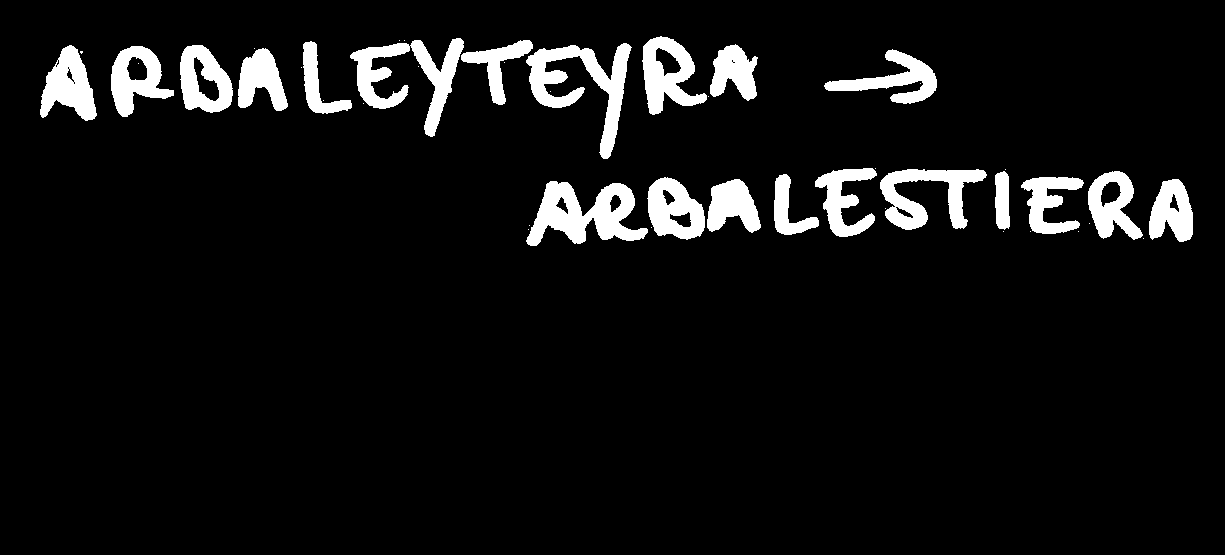 ARBALEYTEYRA →
ARBALESTIERA